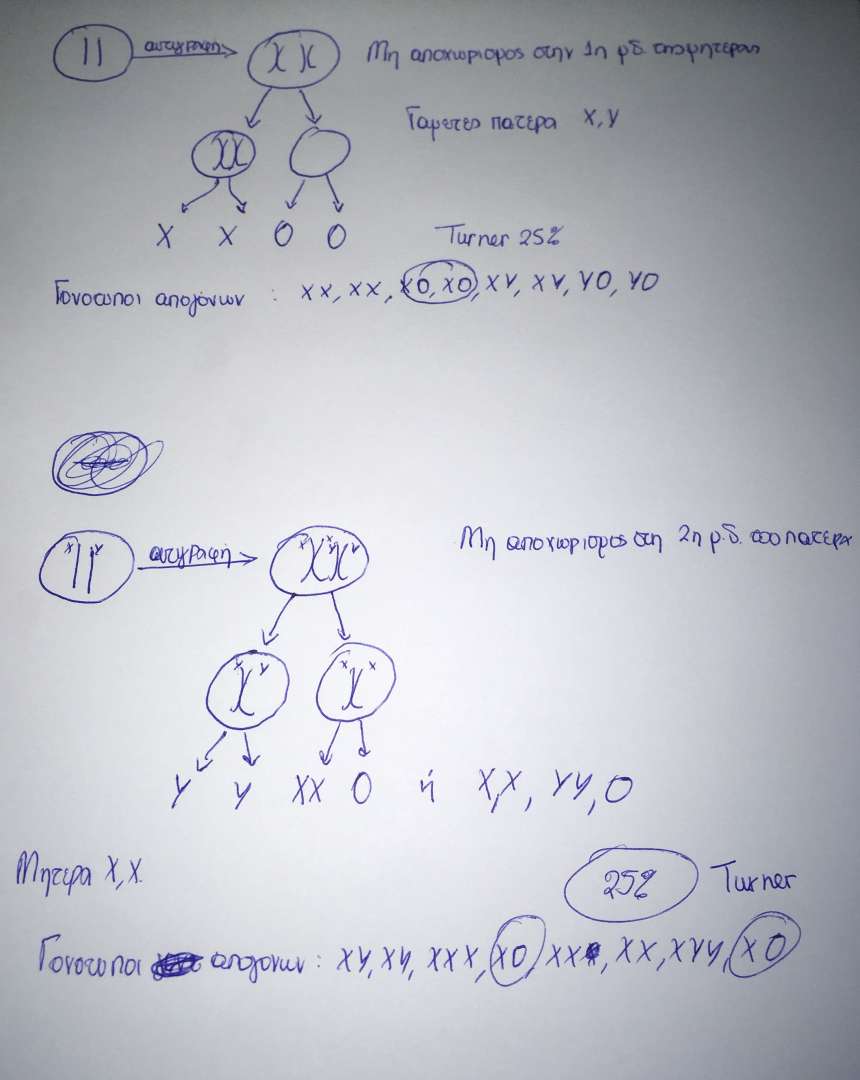 αντιγραφή Μη αποχωρισμος στην 1η μδ. της μητερας
Γαμετες πατερα X, Y
X X O O Turner 25%
Γονοτυποι απογόνων : XX, XX, XO, XO, XY, XY, YO, YO
x y αντιγραφή x x y y Μη αποχωρισμος στη 2η μ.δ. στο πατερα
y y x x
Y Y XX O ή X, X, YY, O
Μητερα X, X. 25% Turner
Γονοτυποι απογονων : XY, XY, XXX, XO, XX, XX, XYY, XO